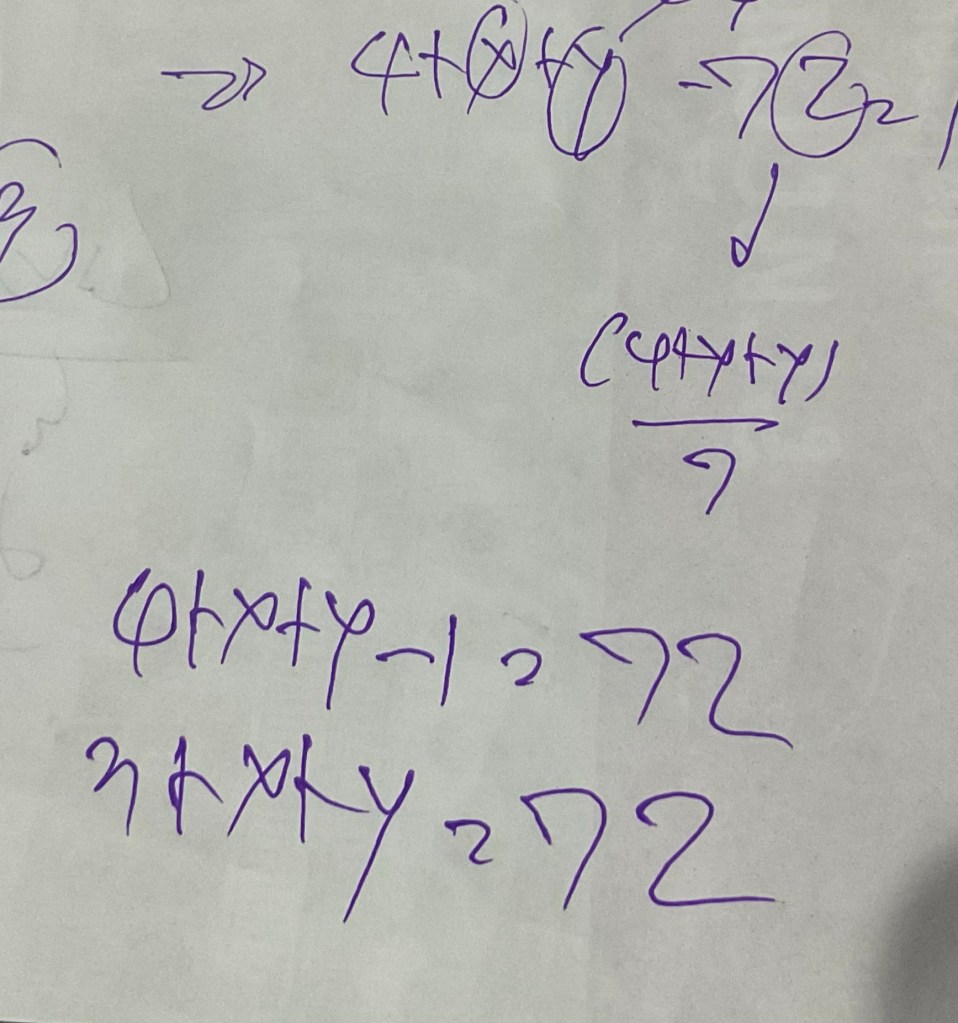 ⇒ 4+x+y -7z = 1
(4+y+y)
7
4+x+y-1 = 7z
3+x+y = 7z